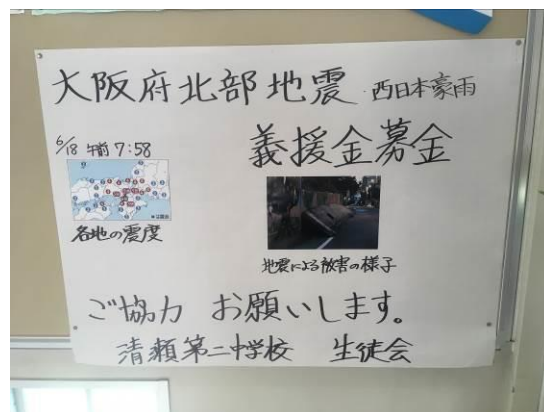 大阪府北部地震 西日本豪雨
義援金募金
6/18 午前 7:58
各地の震度
地震による被害の様子
ご協力 お願いします。
清瀬第二中学校 生徒会